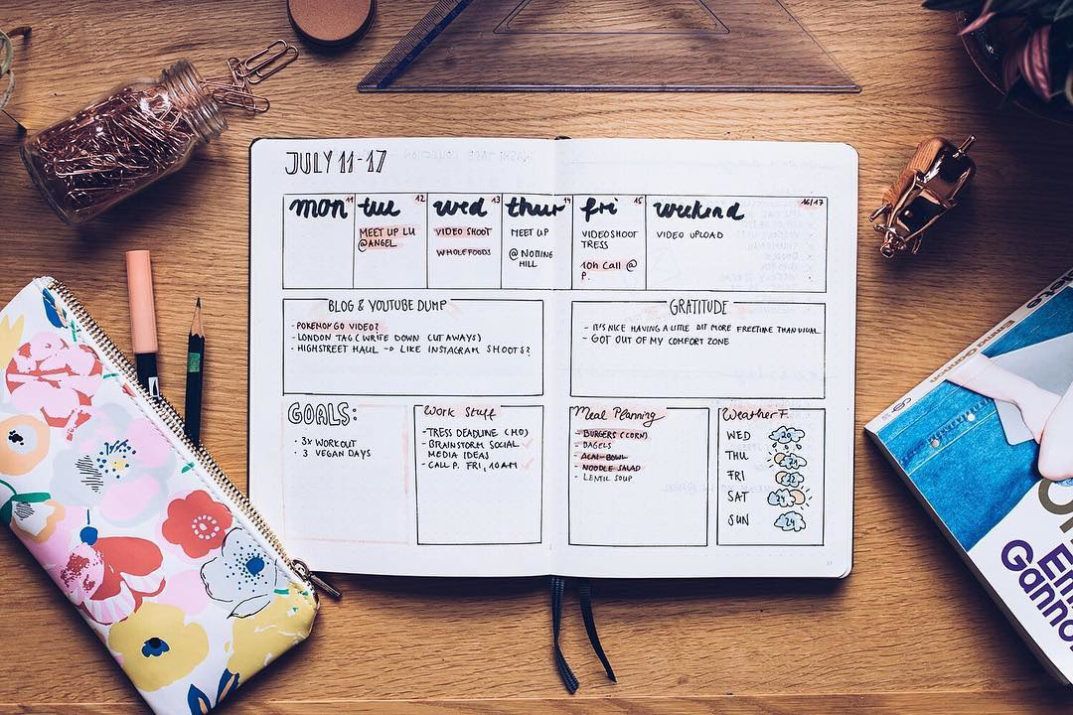 JULY 11-17
mon 11
tue 12
MEET UP LU
@ANGEL
wed 13
VIDEO SHOOT
WHOLEFOODS
thur 14
MEET UP
@NOTTING
HILL
fri 15
VIDEO SHOOT
TRESS
10h Call @
P.
weekend 16/17
VIDEO UPLOAD
BLOG & YOUTUBE DUMP
- POKEMON GO VIDEO?
- LONDON TAG (WRITE DOWN CUT AWAYS)
- HIGHSTREET HAUL → LIKE INSTAGRAM SHOOTS?
GRATITUDE
- IT'S NICE HAVING A LITTLE BIT MORE FREETIME THAN USUAL
- GOT OUT OF MY COMFORT ZONE
GOALS:
· 3x WORKOUT
· 3 VEGAN DAYS
Work Stuff
- TRESS DEADLINE (MO)
- BRAINSTORM SOCIAL
MEDIA IDEAS
- CALL P. FRI, 10AM
Meal Planning
- BURGERS (CORN)
- BAGELS
- ACAI-BOWL
- NOODLE SALAD
- LENTIL SOUP
Weather F.
WED 20
THU
FRI 22
SAT 24
SUN 24
Emma Gannon
Gannon